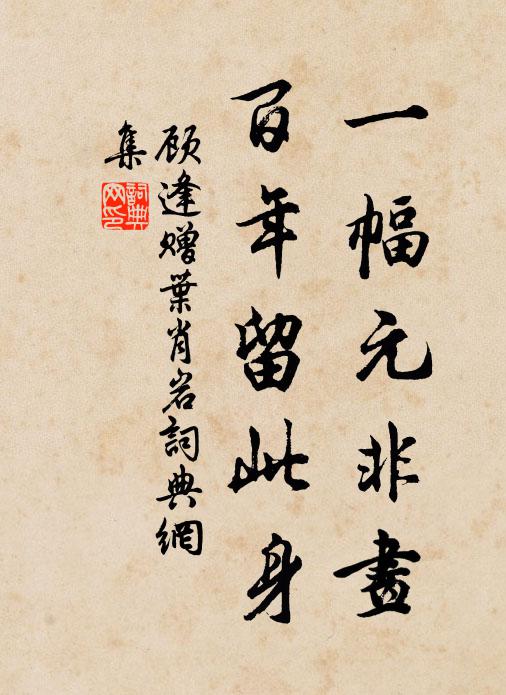 一幅元非畫
百年留此身
顧逢贈葉肖岩詞典網
集
詞典網印